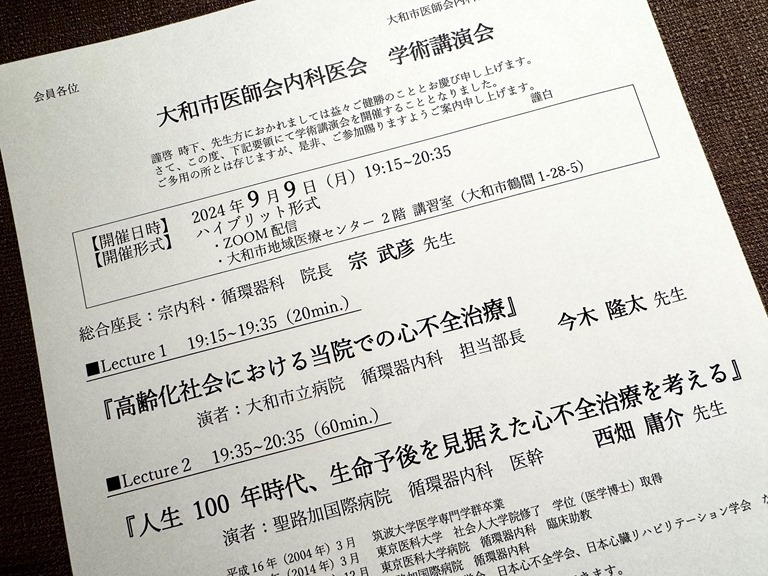 大和市医師会内科
会員各位
大和市医師会内科医会 学術講演会
謹啓 時下、先生方におかれましては益々ご健勝のこととお慶び申し上げます。
さて、この度、下記要領にて学術講演会を開催することとなりました。
ご多用の所とは存じますが、是非、ご参加賜りますようご案内申し上げます。
謹白
【開催日時】 2024年9月9日（月）19:15~20:35
【開催形式】 ハイブリット形式
・ZOOM配信
・大和市地域医療センター 2階 講習室（大和市鶴間1-28-5）
総合座長：宗内科・循環器科 院長 宗 武彦 先生
■Lecture 1 19:15~19:35（20min.）
『高齢化社会における当院での心不全治療』
演者：大和市立病院 循環器内科 担当部長 今木 隆太 先生
■Lecture 2 19:35~20:35（60min.）
『人生 100 年時代、生命予後を見据えた心不全治療を考える』
演者：聖路加国際病院 循環器内科 医幹 西畑 庸介 先生
平成16年（2004年）3月 筑波大学医学専門学群卒業
年（2014年）3月 東京医科大学 社会人大学院修了 学位（医学博士）取得
12月 東京医科大学病院 循環器内科 臨床助教
路加国際病院 循環器内科
学会、日本心不全学会、日本心臓リハビリテーション学会
きます。